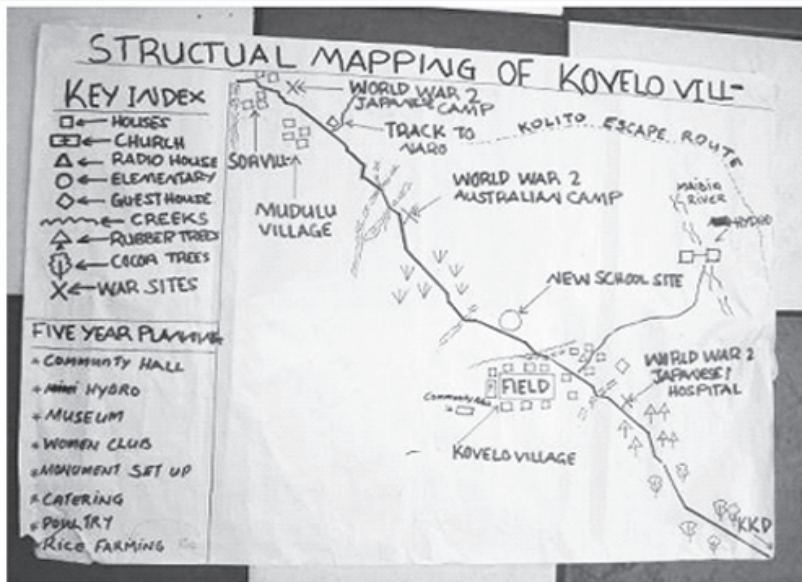 STRUCTUAL MAPPING OF KOVELO VILL-
KEY INDEX
HOUSES
CHURCH
RADIO HOUSE
ELEMENTARY
GUEST HOUSE
CREEKS
RUBBER TREES
COCOA TREES
WAR SITES
FIVE YEAR PLANNING
COMMUNTY HALL
HYDRO
MUSEUM
WOMEN CLUB
MONUMENT SET UP
CATERING
POULTRY
RICE FARMING
WORLD WAR 2
JAPANESE CAMP
TRACK TO
NARO
KOLITO ESCAPE ROUTE
MUDULU
VILLAGE
WORLD WAR 2
AUSTRALIAN CAMP
RIVER
HYDRO
NEW SCHOOL SITE
WORLD WAR 2
JAPANESE
HOSPITAL
FIELD
KOVELO VILLAGE
KKD